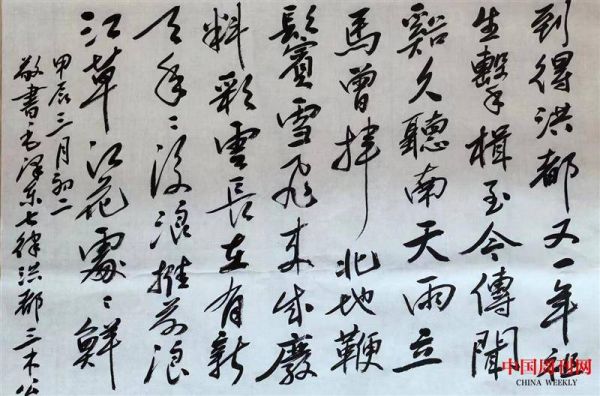 到得洪都又一年祖
生擊楫至今傳聞
谿久聽南天雨立
馬曾揮北地鞭
鬢雪飛來成廢
料彩雲長在有新
天年〻後浪推前浪
江草江花處〻鮮
甲辰三月初二
敬書毛澤東七律洪都三木公
中国周刊网
CHINA WEEKLY